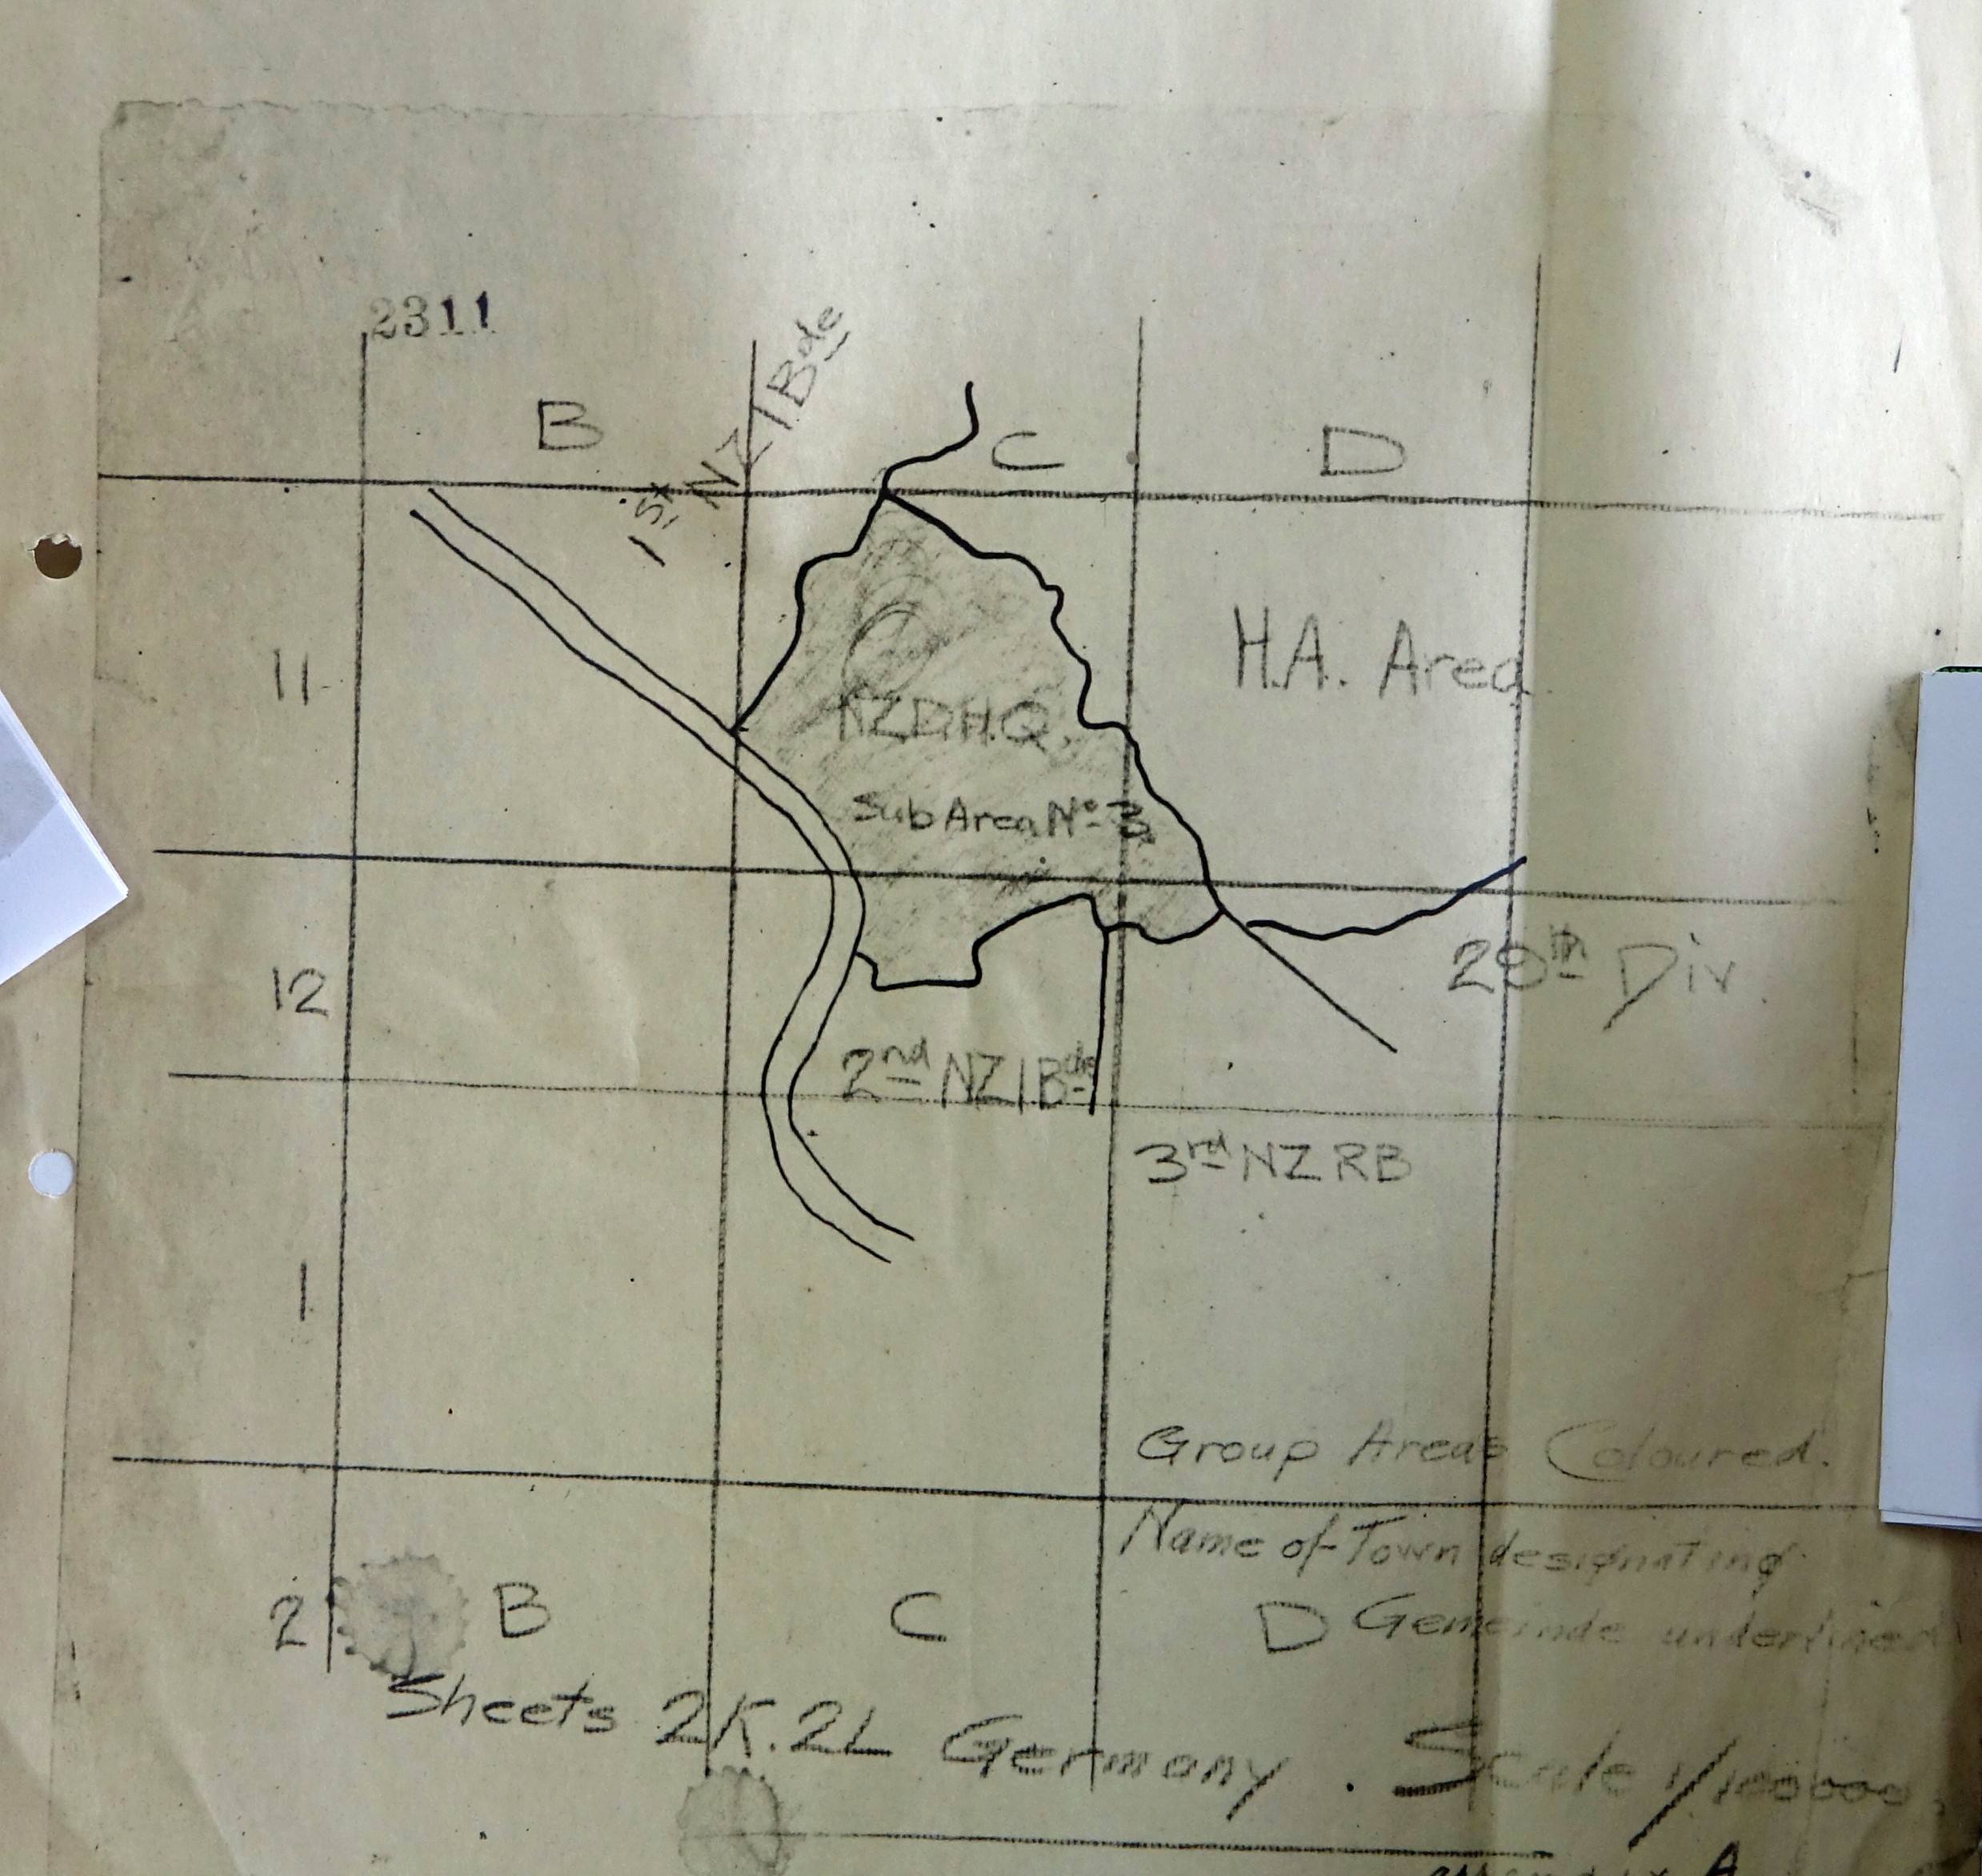 2311
1st NZ I Bde
B
C
D
11
NZDH.Q.
H.A. Area
Sub Area No 3
12
29th Div.
2nd NZ I Bde
3rd NZ RB
1
Group Areas Coloured.
Name of Town designating
2
B
C
D
Gemeinde underlined
Sheets 2K. 2L Germany. Scale 1/100000.
Appendix A